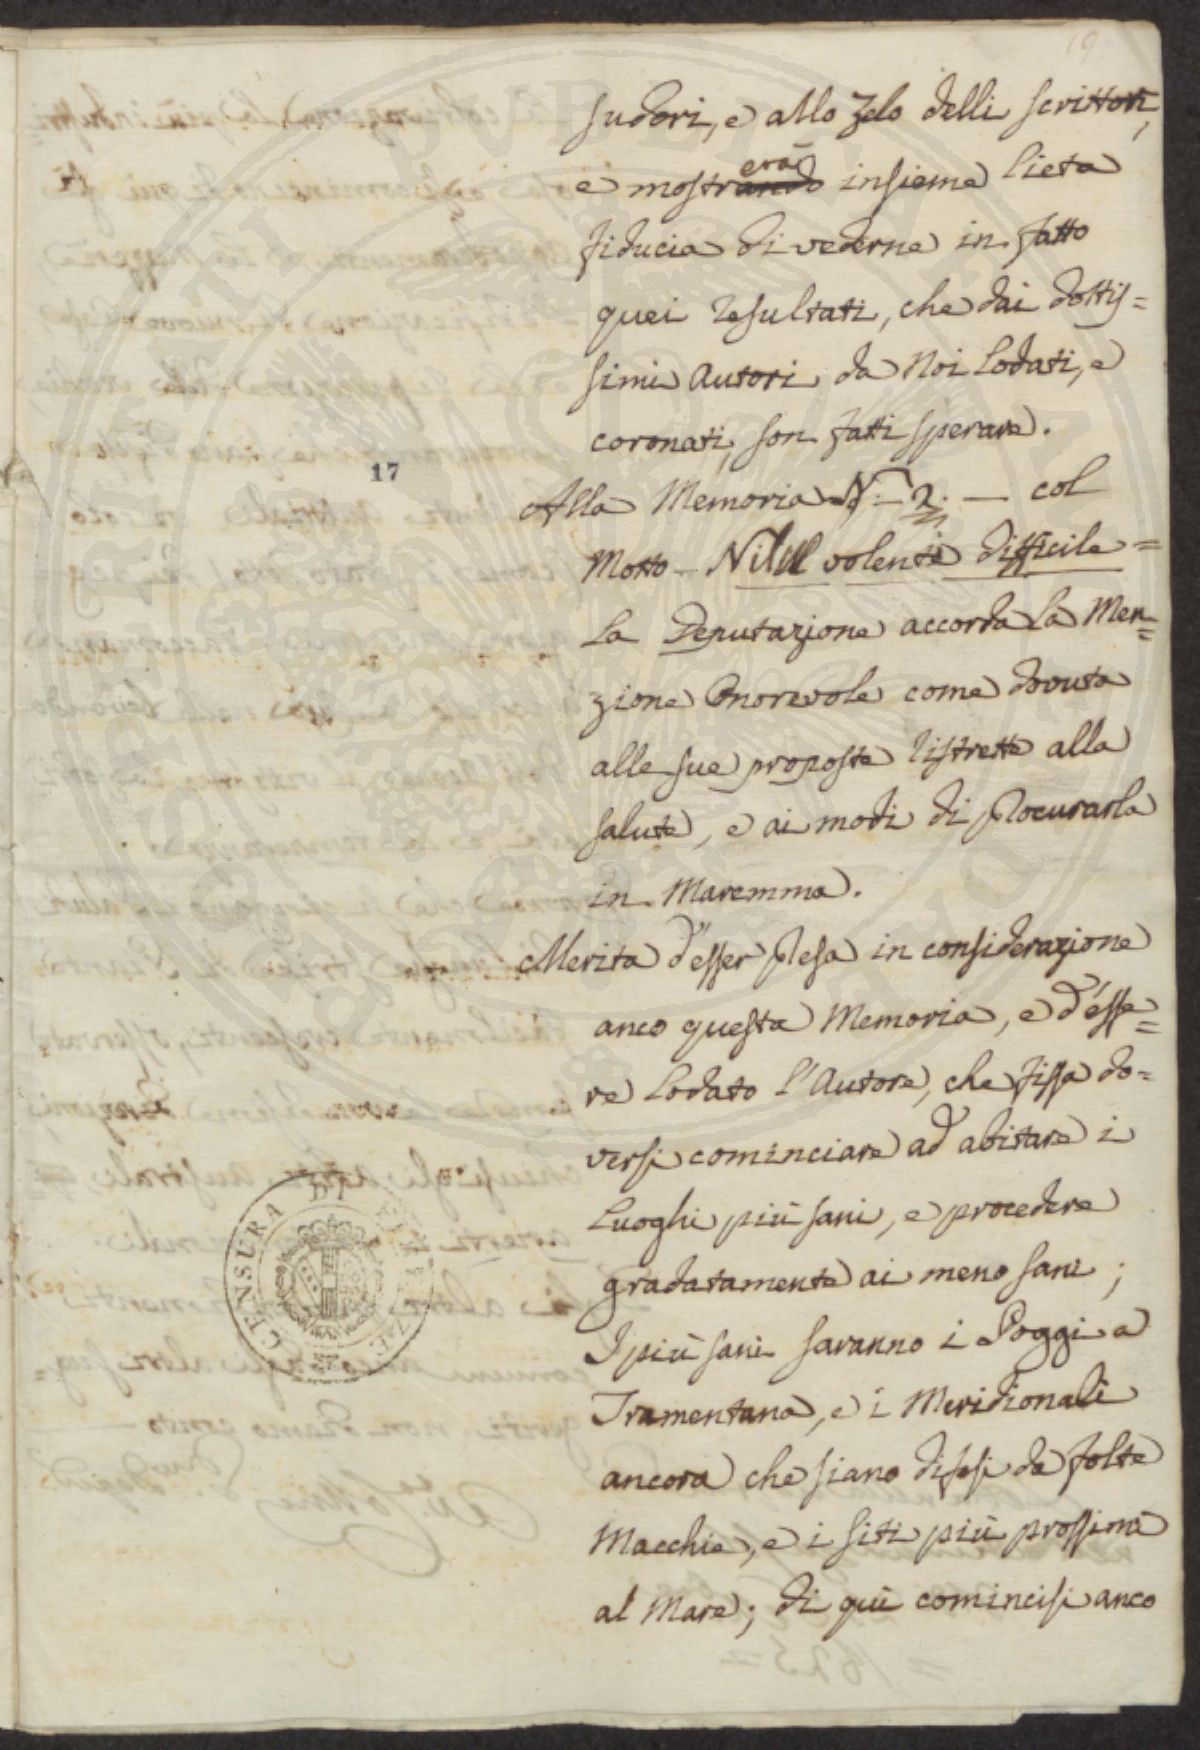 19
sudori, e allo zelo delli scrittori,
e mostrando erà insieme lieta
fiducia di vederne in fatto
quei resultati, che dai dottis=
simi Autori da Noi lodati, e
coronati, son fatti sperare.
17
Alla Memoria N. 2. — col
Motto — Nihil volenti difficile =
La Deputazione accorda la Men=
zione Onorevole come dovuta
alle sue proposte ristrette alla
salute, e ai modi di procurarla
in Maremma.
Merita d'esser presa in considerazione
anco questa Memoria, e d'esse=
re lodato l'Autore, che fissa do=
versi cominciare ad abitare i
Luoghi più sani, e procedere
gradatamente ai meno sani;
I più sani saranno i Poggi a
Tramentana, e i Meridionali
ancora che siano difesi da folte
Macchie, e i siti più prossimi
al Mare; di quì comincisi anco
CENSURA DI